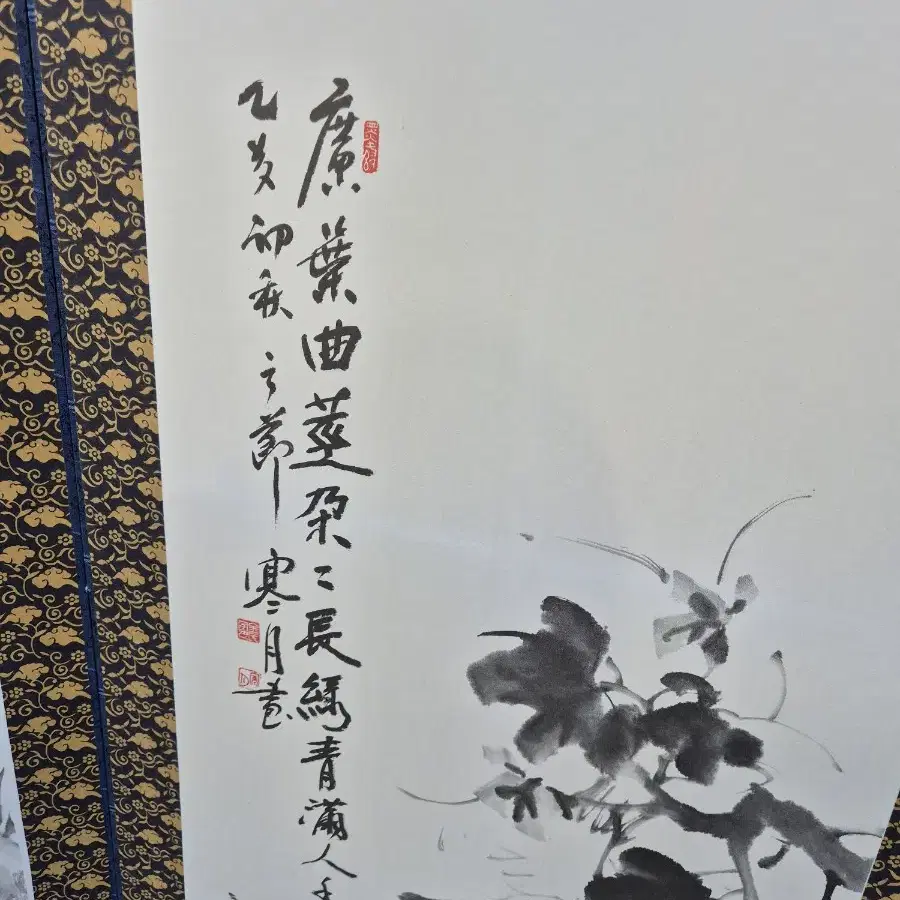 廣葉曲莖朶々長 青滿人
乙亥初秋之節 寒月畫